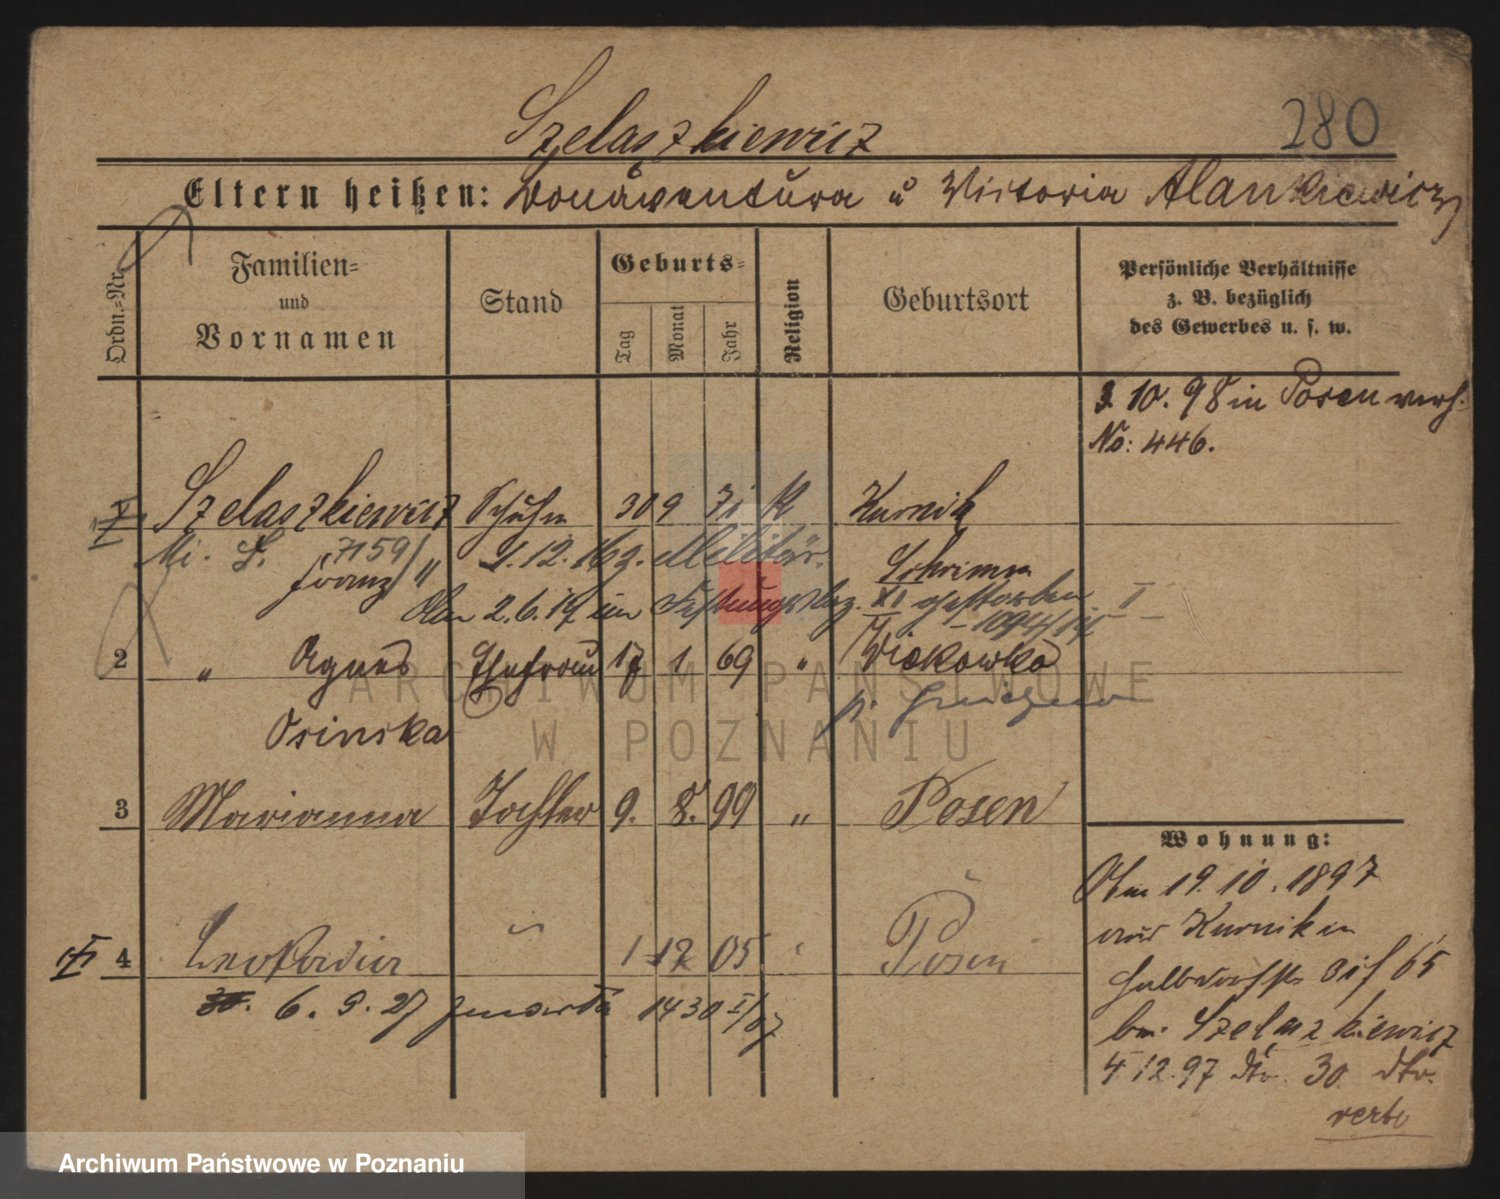 280
Szelaszkiewicz
Eltern heißen: Bonaventura u Victoria Alankiewicz
Ordn.=Nr.
Familien=
und
Vornamen
Stand
Geburts=
Tag
Monat
Jahr
Religion
Geburtsort
Persönliche Verhältnisse
z. B. bezüglich
des Gewerbes u. s. w.
3 10. 98 in Posen verh.
No: 446.
Szelaszkiewicz Schuhm 30 9 71 K Kurnik
Franz 7159 " 1.12.16 g. Militär. Schrimm
Am 2.6.19 im Festungslaz. XI gestorben I
1094/19
2 " Agnes Ehefrau 17 1 69 " Wiekowko
Osinska
3 Marianna Tochter 9. 8. 99 " Posen
4 Leokadia " 1 12 05 " Posen
6. 9. 27 1430 I/07
Wohnung:
Am 19.10.1897
aus Kurnik in
Halbdorfstr 65
bei Szelaszkiewicz
4.12.97 dto. 30. dto.
verte
ARCHIWUM PAŃSTWOWE
W POZNANIU
Archiwum Państwowe w Poznaniu